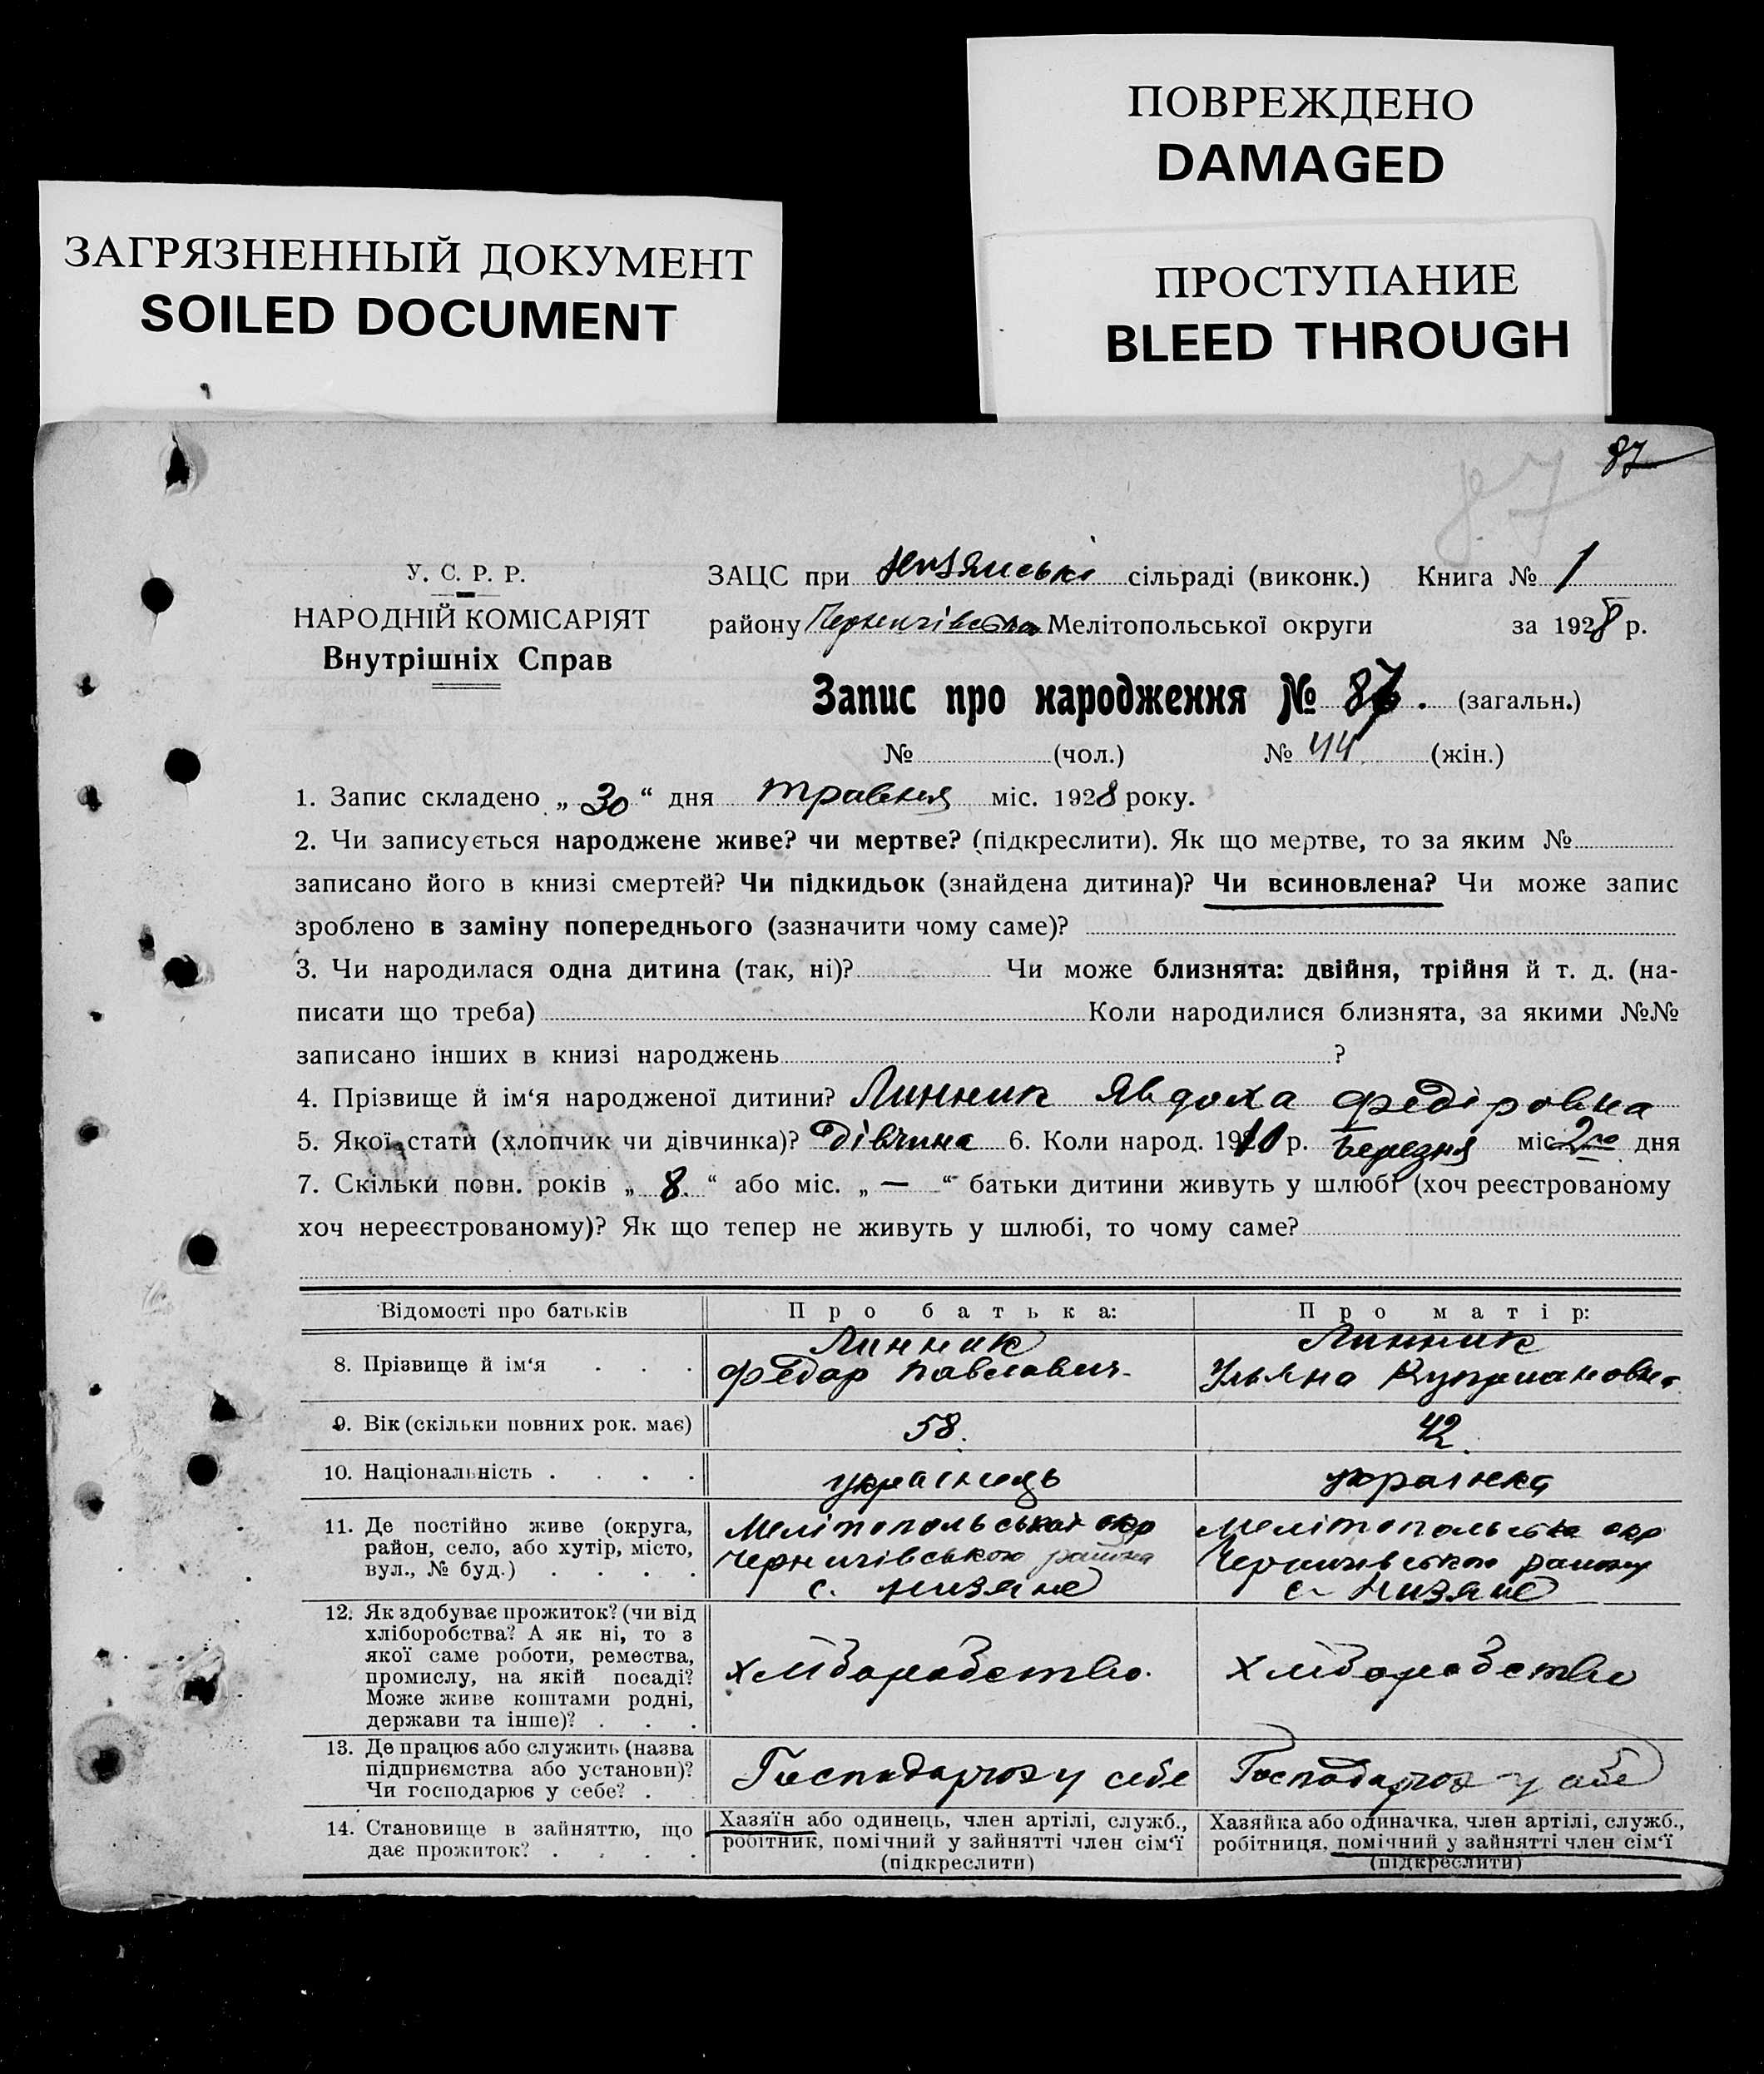 ПОВРЕЖДЕНО
DAMAGED
ЗАГРЯЗНЕННЫЙ ДОКУМЕНТ
SOILED DOCUMENT
ПРОСТУПАНИЕ
BLEED THROUGH
87
87
У. С. Р. Р.
НАРОДНІЙ КОМІСАРІЯТ
Внутрішніх Справ
ЗАЦС при сільраді (виконк.) Книга № 1
району Мелітопольської округи за 1928 р.
Запис про народження № 87. (загальн.)
№ (чол.) № 44 (жін.)
1. Запис складено „ 30 “ дня травня міс. 1928 року.
2. Чи записується народжене живе? чи мертве? (підкреслити). Як що мертве, то за яким №
записано його в книзі смертей? Чи підкидьок (знайдена дитина)? Чи всиновлена? Чи може запис
зроблено в заміну попереднього (зазначити чому саме)?
3. Чи народилася одна дитина (так, ні)? Чи може близнята: двійня, трійня й т. д. (на-
писати що треба) Коли народилися близнята, за якими №№
записано інших в книзі народжень ?
4. Прізвище й ім‘я народженої дитини? Линник Явдоха Федіровна
5. Якої стати (хлопчик чи дівчинка)? дівчина 6. Коли народ. 1910 р. березня міс 2го дня
7. Скільки повн. років „ 8. “ або міс. „ — “ батьки дитини живуть у шлюбі (хоч реєстрованому
хоч нереєстрованому)? Як що тепер не живуть у шлюбі, то чому саме?
Відомості про батьків Про батька: Про матір:
8. Прізвище й ім‘я . . . Линник Федор Павлович Линник Ульяна Куприановна
9. Вік (скільки повних рок. має) 58. 42.
10. Національність . . . . українець українка
11. Де постійно живе (округа,
район, село, або хутір, місто,
вул., № буд.) . . . .
Мелітопольської окр
Чернигівського района
с. Низяне
Мелітопольська окр
Чернигівського району
с. Низяне
12. Як здобуває прожиток? (чи від
хліборобства? А як ні, то з
якої саме роботи, ремества,
промислу, на якій посаді?
Може живе коштами родні,
держави та інше)? . . .
хліборобство. хліборобство
13. Де працює або служить (назва
підприємства або установи)?
Чи господарює у себе? .
Господарює у себе Господарює у себе
14. Становище в зайняттю, що
дає прожиток? . . . .
Хазяїн або одинець, член артілі, служб.,
робітник, помічний у зайнятті член сім‘ї
(підкреслити)
Хазяйка або одиначка, член артілі, служб.,
робітниця, помічний у зайнятті член сім‘ї
(підкреслити)